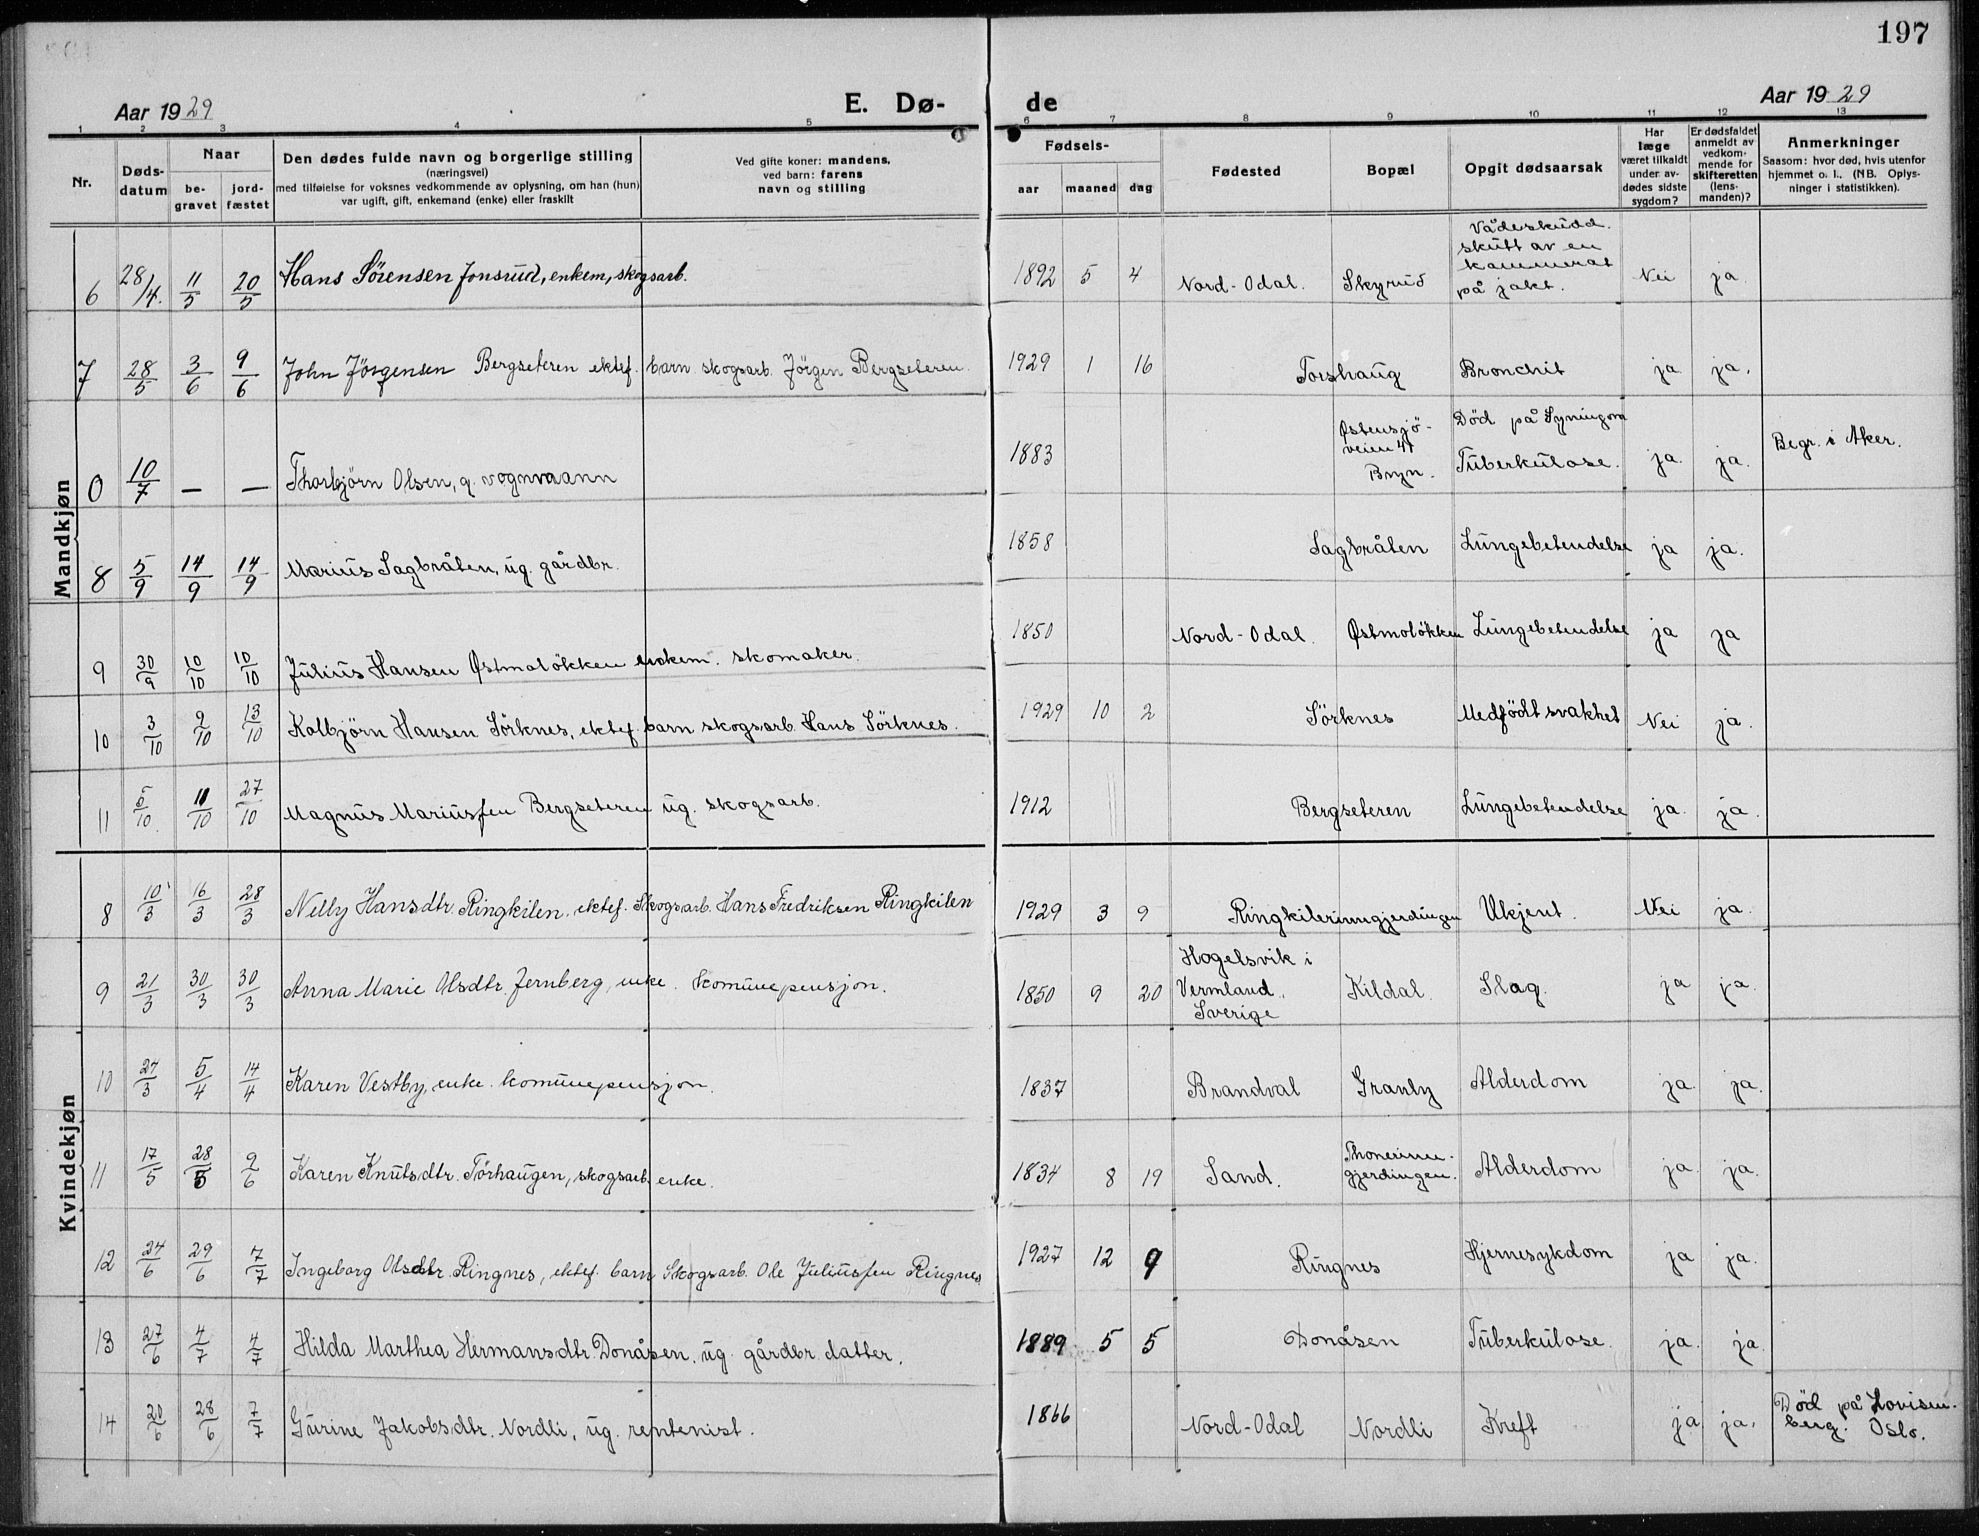 197
Aar 1929
E. Dø- de
Aar 1929
1 2 3 4 5 6 7 8 9 10 11 12 13
Nr.
Døds-
datum
Naar
be-
gravet
jord-
fæstet
Den dødes fulde navn og borgerlige stilling
(næringsvei)
med tilføielse for voksnes vedkommende av oplysning, om han (hun)
var ugift, gift, enkemand (enke) eller fraskilt
Ved gifte koner: mandens,
ved barn: farens
navn og stilling
Fødsels-
aar maaned dag
Fødested
Bopæl
Opgit dødsaarsak
Har
læge
været tilkaldt
under av-
dødes sidste
sygdom?
Er dødsfaldet
anmeldt av
vedkom-
mende for
skifteretten
(lens-
manden)?
Anmerkninger
Saasom: hvor død, hvis utenfor
hjemmet o. l., (NB. Oplys-
ninger i statistikken).
Mandkjøn
6 28/4. 11/5 20/5 Hans Sörensen Jonsrud, enkem, skogsarb. 1892 5 4 Nord-Odal. Skyrud Vådeskudd.
skutt av en
kammerat
på jakt. Nei ja
7 28/5 3/6 9/6 John Jörgensen Bergseteren ektef. barn skogsarb. Jörgen Bergseteren. 1929 1 16 Torshaug Bronchit ja ja.
0 10/7 — — Thorbjörn Olsen, g. vognmann 1883 Østensjö-
veien 41
Bryn. Död på
Tuberkulose. ja. ja. Begr. i Aker.
8 5/9 14/9 14/9 Marius Sagbråten, ug. gårdbr. 1858 Sagbråten Lungebetendelse ja ja.
9 30/9 10/10 10/10 Julius Hansen Østmoløkken enkem. skomaker. 1850 Nord-Odal. Østmoløkken Lungebetendelse ja ja
10 3/10 9/10 13/10 Kolbjörn Hansen Sörknes, ektef. barn skogsarb. Hans Sörknes. 1929 10 2 Sörknes Medfödt svakhet Nei ja.
11 5/10. 11/10 27/10 Magnus Mariussen Bergseteren ug. skogsarb. 1912 Bergseteren Lungebetendelse ja. ja.
Kvindekjøn
8 10/3 16/3 28/3 Nelly Hansdtr. Ringkilen. ektef. Skogsarb. Hans Fredriksen Ringkilen 1929 3 9 Ringkilerinngjerdingen Ukjent. Nei ja.
9 21/3 30/3 30/3 Anna Marie Olsdtr. Jernberg, enke. Komunepensjon. 1850 9 20 Hogelsvik i
Vermland.
Sverige Kildal. Slag. ja ja.
10 24/3 5/4 14/4 Karen Vestby, enke. komunepensjon. 1837 Brandval Granly Alderdom ja. ja.
11 17/5 28/5 9/6 Karen Knutsdtr. Törhaugen, skogsarb. enke. 1834 8 19 Sand. Thonerinn-
gjerdingen. Alderdom ja. ja.
12 24/6 29/6 7/7 Ingeborg Olsdtr. Ringnes, ektef. barn Skogsarb. Ole Juliussen Ringnes 1927 12 9 Ringnes Hjernesykdom ja ja.
13 27/6 4/7 4/7 Hilda Marthea Hermansdtr. Donåsen. ug. gårdbr. datter. 1889 5 5 Donåsen Tuberkulose. ja. ja.
14 20/6 28/6 7/7 Gurine Jakobsdtr. Nordli, ug. rentenist. 1866 Nord-Odal Nordli Kreft ja ja. Död på Lovisen-
berg. Oslo.